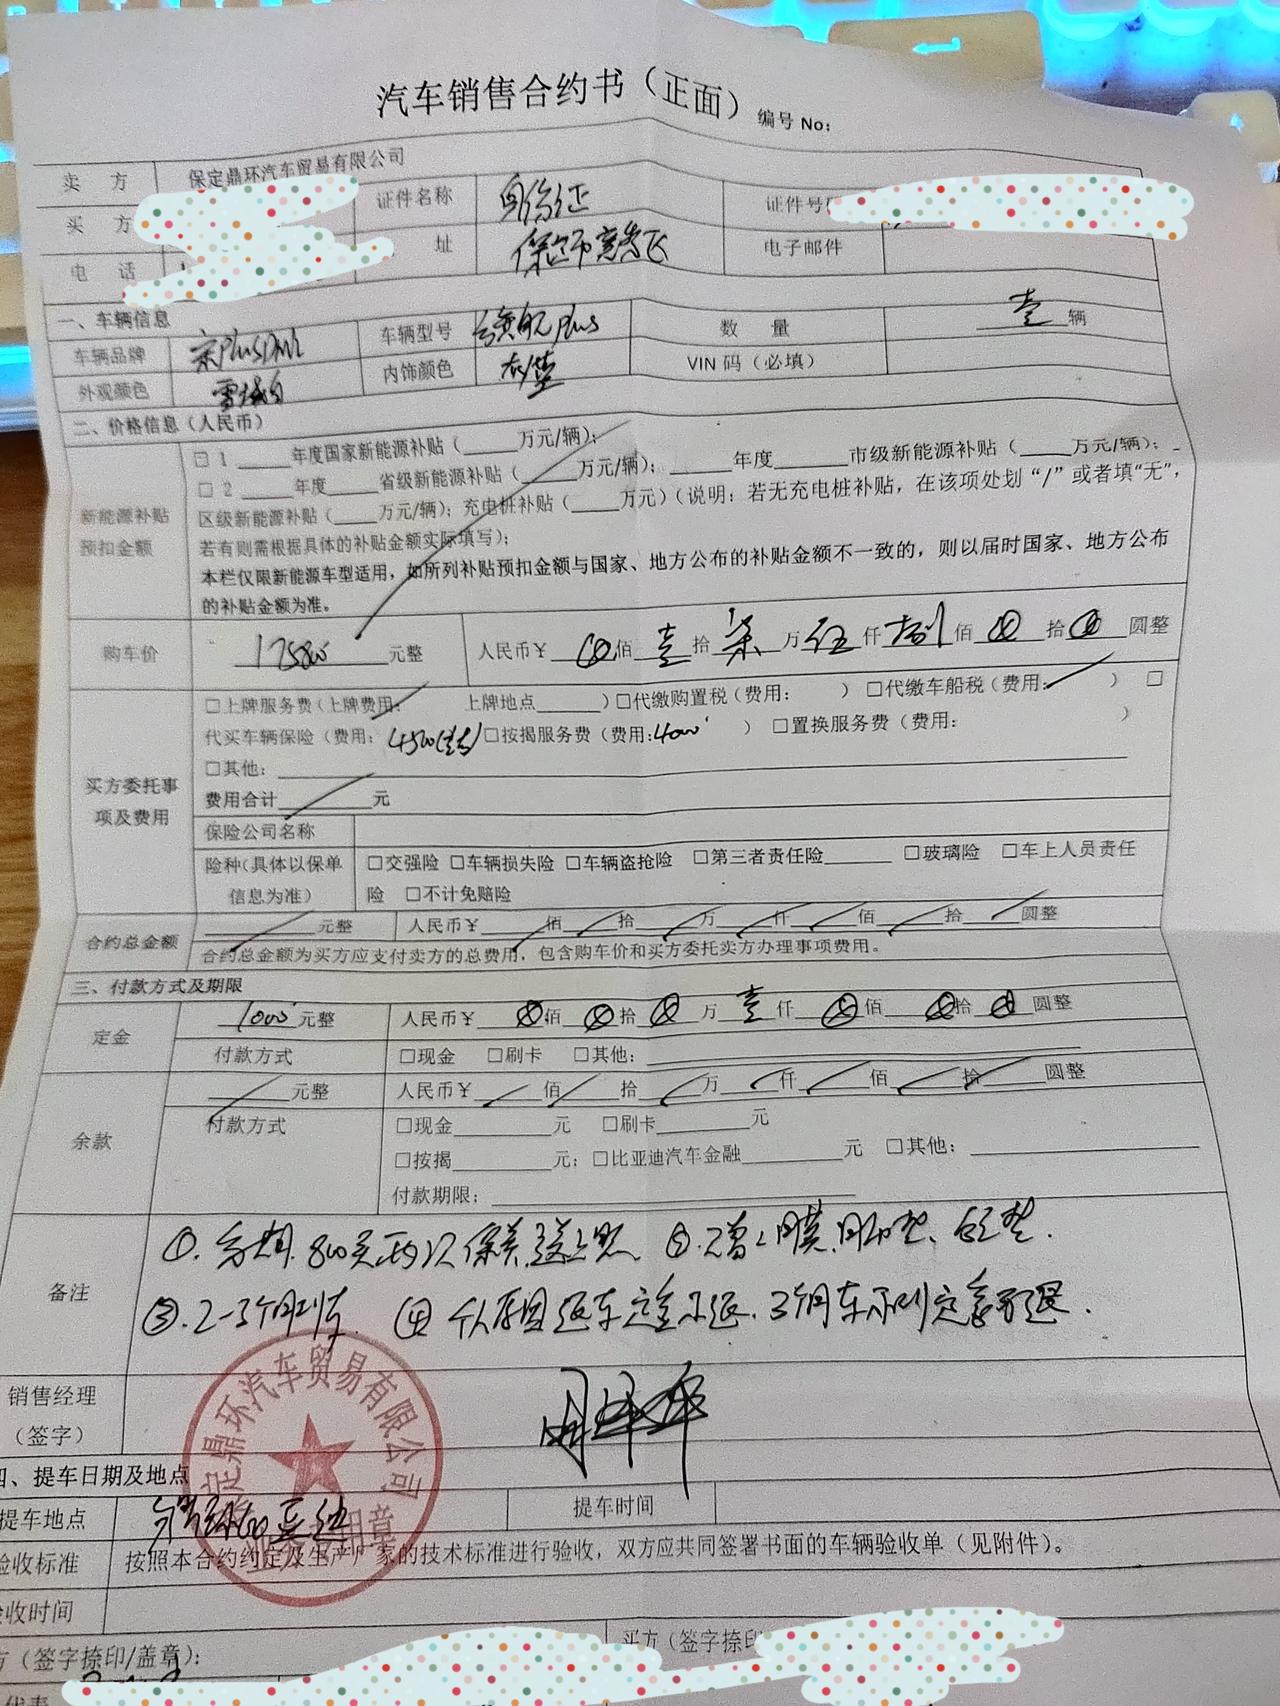 汽车销售合约书（正面） 编号 No:
卖 方 保定鼎环汽车贸易有限公司
买 方 证件名称 身份证 证件号
电 话 址 保定市 电子邮件
一、车辆信息
车辆品牌 宋PlusDMi 车辆型号 旗舰Plus 数 量 壹 辆
外观颜色 雪域白 内饰颜色 VIN 码（必填）
二、价格信息（人民币）
新能源补贴预扣金额
□ 1 _____年度国家新能源补贴（_____万元/辆）；
□ 2 _____年度_____省级新能源补贴（_____万元/辆）；_____年度_____市级新能源补贴（_____万元/辆）；_
区级新能源补贴（____万元/辆）；充电桩补贴（____万元）（说明：若无充电桩补贴，在该项处划“/”或者填“无”，
若有则需根据具体的补贴金额实际填写）；
本栏仅限新能源车型适用，如所列补贴预扣金额与国家、地方公布的补贴金额不一致的，则以届时国家、地方公布
的补贴金额为准。
购车价 175800 元整 人民币￥ 佰 壹 拾 柒 万 伍 仟 捌 佰 拾 圆整
买方委托事项及费用
□上牌服务费（上牌费用: 上牌地点______）□代缴购置税（费用: ）□代缴车船税（费用: ）□
代买车辆保险（费用: 4500 □按揭服务费（费用:4000 ） □置换服务费（费用: ）
□其他:
费用合计 元
保险公司名称
险种（具体以保单信息为准） □交强险 □车辆损失险 □车辆盗抢险 □第三者责任险______ □玻璃险 □车上人员责任
险 □不计免赔险
合约总金额 元整 人民币￥ 佰 拾 万 仟 佰 拾 圆整
合约总金额为买方应支付卖方的总费用，包含购车价和买方委托卖方办理事项费用。
三、付款方式及期限
定金 1000 元整 人民币￥ 佰 拾 万 壹 仟 佰 拾 圆整
付款方式 □现金 □刷卡 □其他:
余款 元整 人民币￥ 佰 拾 万 仟 佰 拾 圆整
付款方式 □现金________元 □刷卡________元
□按揭________元；□比亚迪汽车金融________元 □其他:
付款期限:
备注
①. 分期. 800元两次保养 送上照 ②. 赠送 膜. 脚垫.
③. 2-3个月到车. ④ 个人原因退车定金不退. 3个月车不到定金可退.
销售经理
（签字）
保定鼎环汽车贸易有限公司
四、提车日期及地点
提车地点 提车时间
验收标准 按照本合约约定及生产厂家的技术标准进行验收，双方应共同签署书面的车辆验收单（见附件）。
验收时间
方（签字捺印/盖章）： 买方（签字捺印
代表